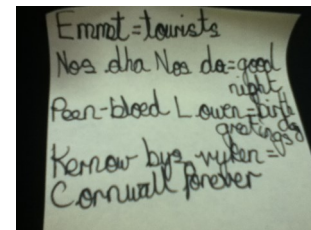 Emmet=tourists
Nos dha Nos da=good
night
Peen-bloed Lowen=birth
day
greetings
Kernow bys vyken=
Cornwall forever